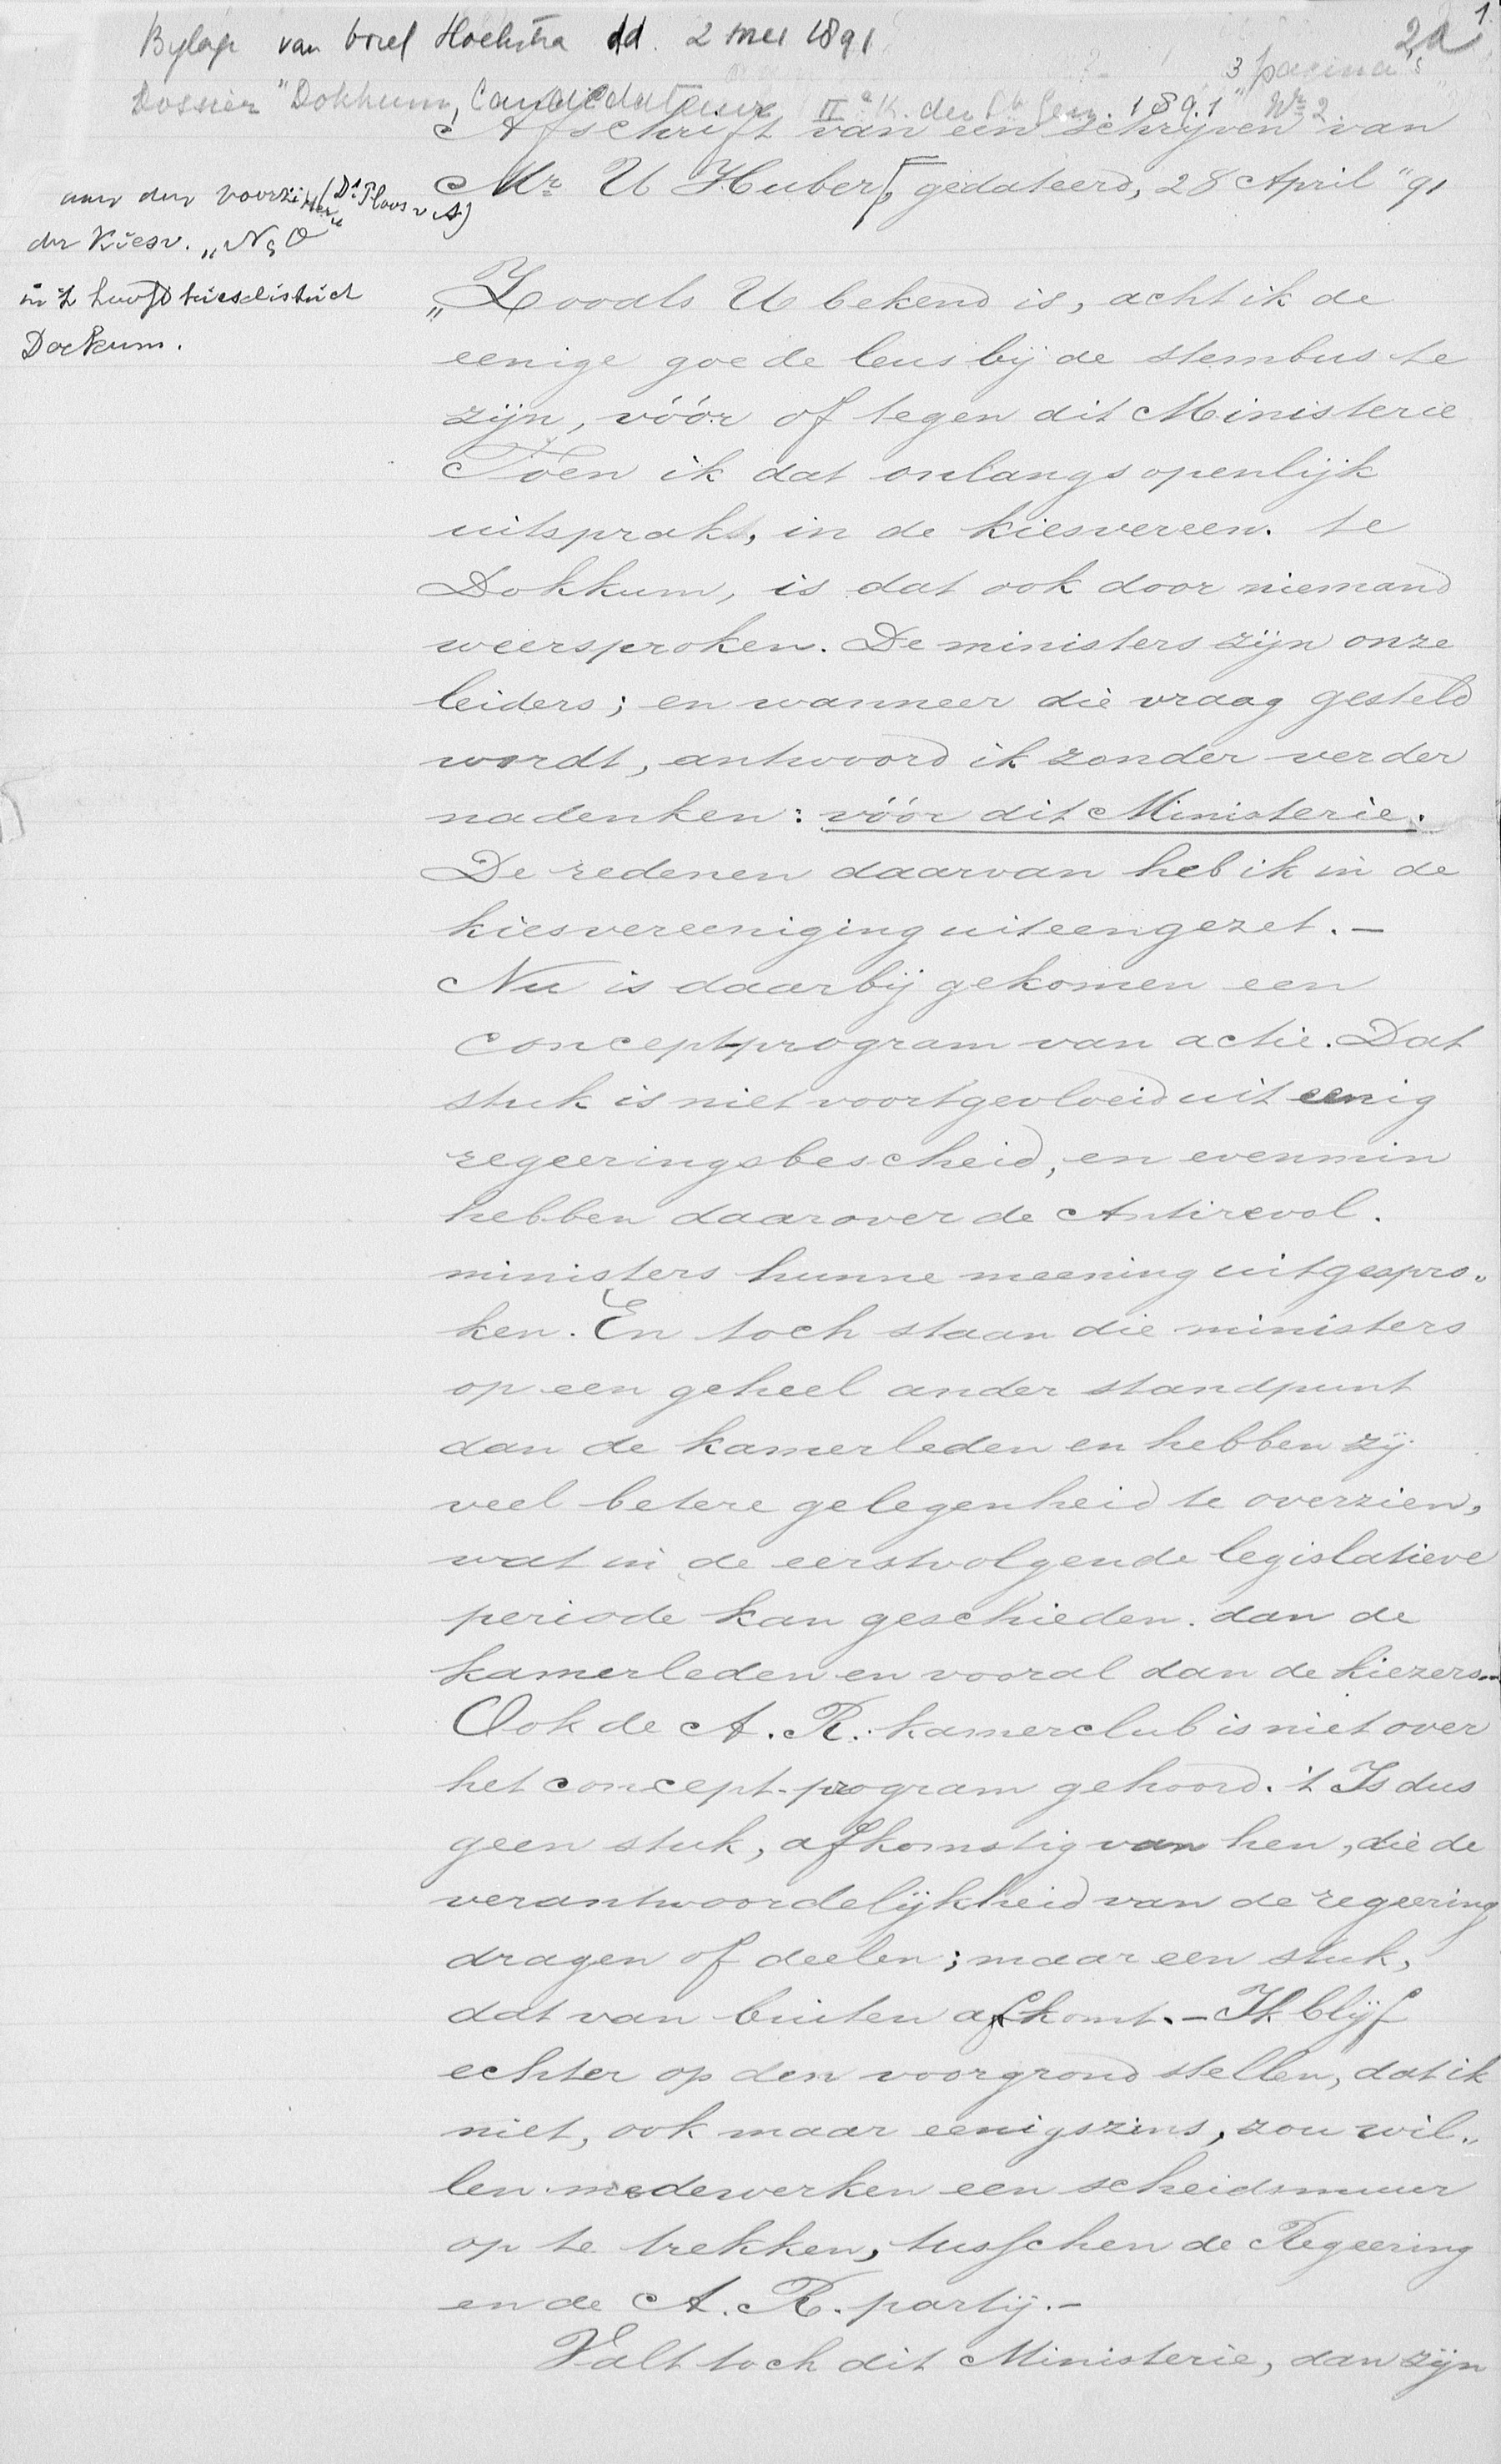 Bylage van brief Hoekstra dd. 2 mei 1891
2a
1.
3 pagina's
Dossier "Dokkum, Candidatuur IIe K. der St. Gen. 1891" No 2
Afschrift van een schrijven van
Mr. U Huber, gedateerd, 28 April "91
aan den voorzitter (Ds. Ploos v A)
der Kiesv. "N & O"
in 't hoofdkiesdistrict
Dockum.
"Zooals U bekend is, acht ik de
eenige goede leus bij de stembus te
zijn, vóór of tegen dit Ministerie
Toen ik dat onlangs openlijk
uitsprak, in de kiesvereen. te
Dokkum, is dat ook door niemand
weersproken. De ministers zijn onze
leiders; en wanneer die vraag gesteld
wordt, antwoord ik zonder verder
nadenken: vóór dit Ministerie.
De redenen daarvan heb ik in de
kiesvereeniging uiteengezet. —
Nu is daarbij gekomen een
conceptprogram van actie. Dat
stuk is niet voortgevloeid uit eenig
regeeringsbescheid, en evenmin
hebben daarover de Antirevol.
ministers hunne meening uitgespro„
ken. En toch staan die ministers
op een geheel ander standpunt
dan de kamerleden en hebben zij
veel betere gelegenheid te overzien,
wat in de eerstvolgende legislatieve
periode kan geschieden. dan de
kamerleden en vooral dan de kiezers. —
Ook de A. R. kamerclub is niet over
het concept-program gehoord. 't Is dus
geen stuk, afkomstig van hen, die de
verantwoordelijkheid van de regeering
dragen of deelen; maar een stuk,
dat van buiten afkomt. — Ik blijf
echter op den voorgrond stellen, dat ik
niet, ook maar eenigszins, zou wil„
len medewerken een scheidsmuur
op te trekken, tusschen de Regeering
en de A. R. partij. —
Valt toch dit Ministerie, dan zijn